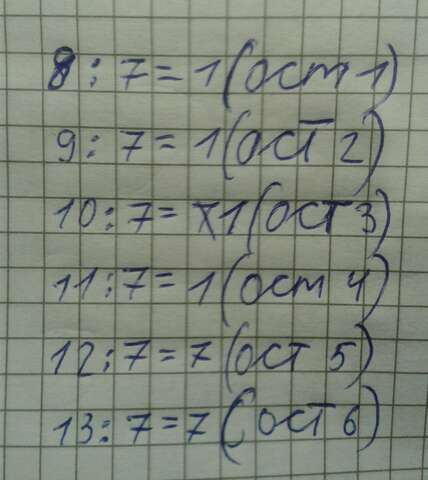 8 : 7 = 1 (ост 1)
9 : 7 = 1 (ост 2)
10 : 7 = 1 (ост 3)
11 : 7 = 1 (ост 4)
12 : 7 = 7 (ост 5)
13 : 7 = 7 (ост 6)